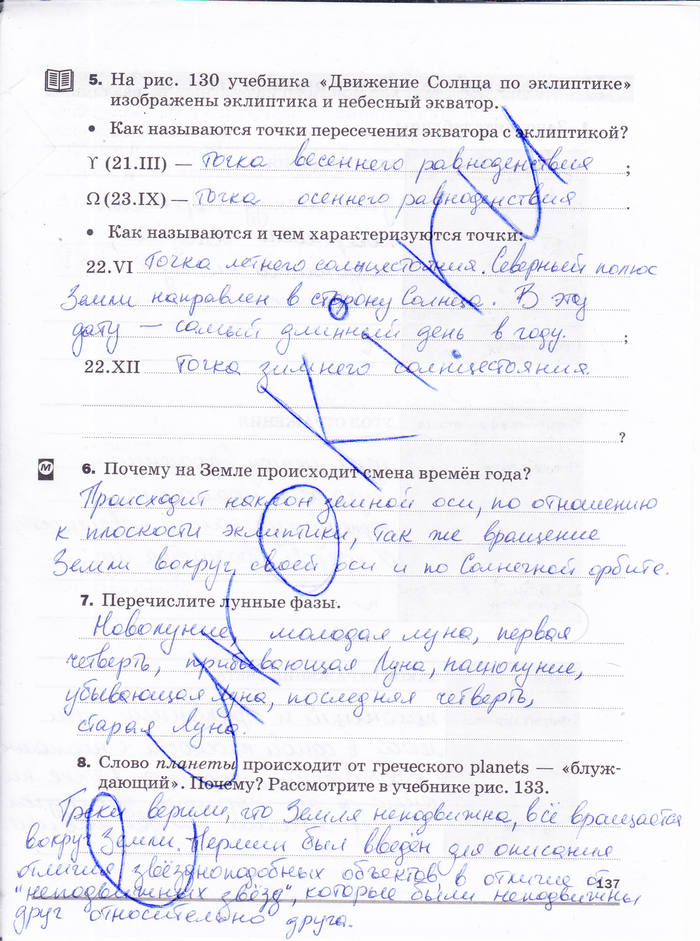 5. На рис. 130 учебника «Движение Солнца по эклиптике»
изображены эклиптика и небесный экватор.
• Как называются точки пересечения экватора с эклиптикой?
♈ (21.III) — точка весеннего равноденствия ;
Ω (23.IX) — точка осеннего равноденствия .
• Как называются и чем характеризуются точки:
22.VI Точка летнего солнцестояния. Северный полюс
Земли направлен в сторону Солнца. В эту
дату — самый длинный день в году. ;
22.XII Точка зимнего солнцестояния
?
М 6. Почему на Земле происходит смена времён года?
Происходит наклон земной оси, по отношению
к плоскости эклиптики, так же вращение
Земли вокруг своей оси и по Солнечной орбите.
7. Перечислите лунные фазы.
Новолуние, молодая луна, первая
четверть, прибывающая Луна, полнолуние,
убывающая Луна, последняя четверть,
старая Луна.
8. Слово планеты происходит от греческого planets — «блуж-
дающий». Почему? Рассмотрите в учебнике рис. 133.
Греки верили, что Земля неподвижна, всё вращается
вокруг Земли. Термин был введён для описания
отличия звёздноподобных объектов в отличие от
"неподвижных звёзд", которые были неподвижны
137
друг относительно друга.